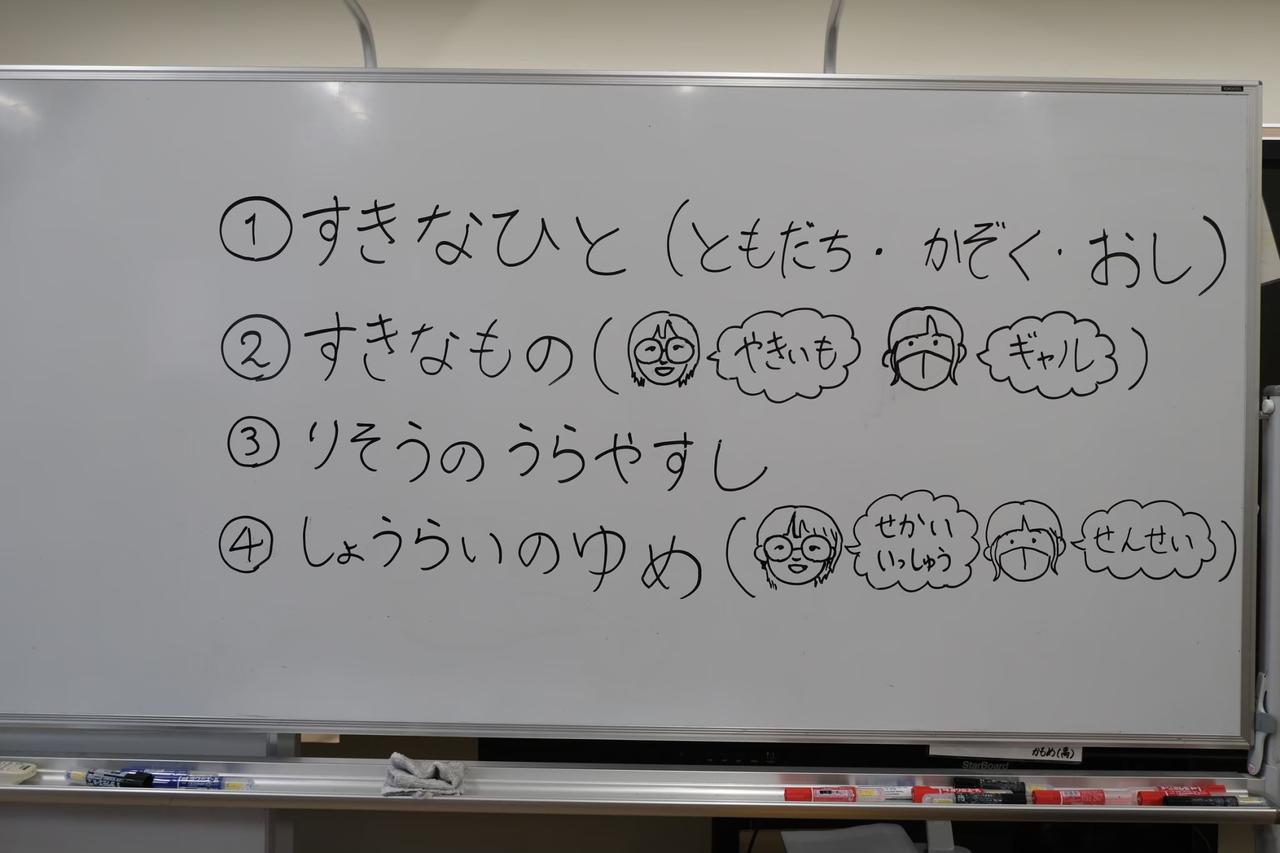 ① すきなひと (ともだち・かぞく・おし)
② すきなもの ( やきいも ギャル )
③ りそうのうらやすし
④ しょうらいのゆめ ( せかい いっしゅう せんせい )
かもめ(高)
StarBoard